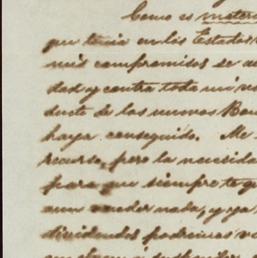 Como es materi
que tenia en los Estados
mis compromisos se a
dad y contra toda mi vo
ducto de los nuevos Bon
haya conseguido. Me
recurso, pero la necesida
para que siempre te q
aun vender nada, y ya
dividendos podriamos